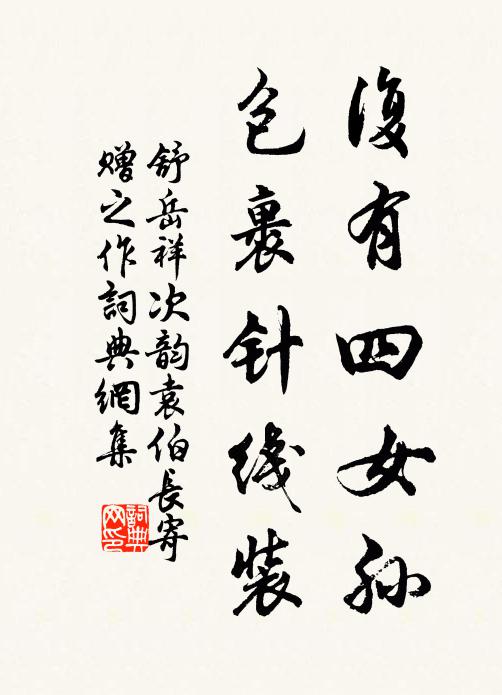 復有四女孙
包裹针线装
舒岳祥次韵袁伯長寄
贈之作詞典網集
詞典网印